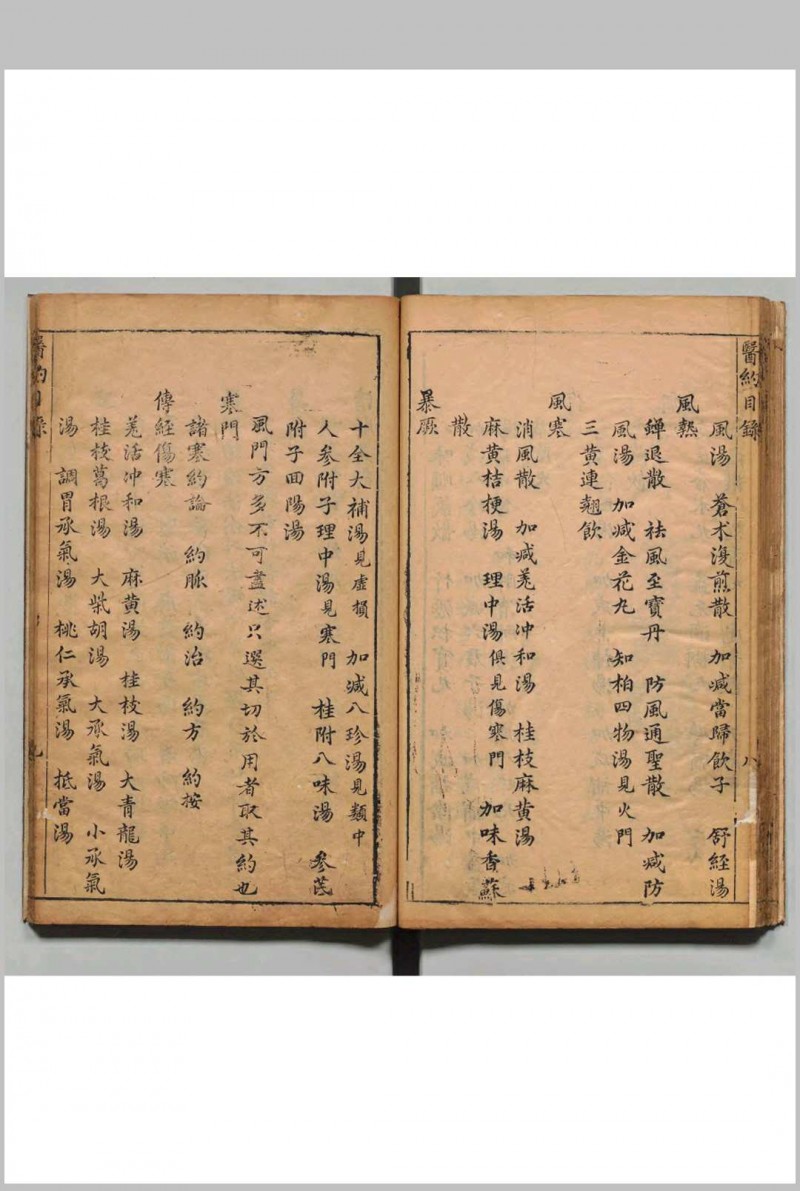 醫約目錄
八
風湯　蒼朮復煎散　加減當歸飲子　舒經湯
風熱
蟬退散　祛風至寶丹　防風通聖散　加減防
風湯　加減金花丸　知柏四物湯見火門
三黃連翹飲
風寒
消風散　加減羗活冲和湯　桂枝麻黃湯
麻黃桔梗湯　理中湯俱見傷寒門　加味香蘇
散
暴厥
十全大補湯見虛損　加減八珍湯見類中
人參附子理中湯見寒門　桂附八味湯　參芪
附子回陽湯
風門方多不可盡述只選其切於用者取其約也
寒門
諸寒約論　約脉　約治　約方　約按
傳經傷寒
羗活冲和湯　麻黃湯　桂枝湯　大青龍湯
桂枝葛根湯　大柴胡湯　大承氣湯　小承氣
湯　調胃承氣湯　桃仁承氣湯　抵當湯
醫約目錄
九